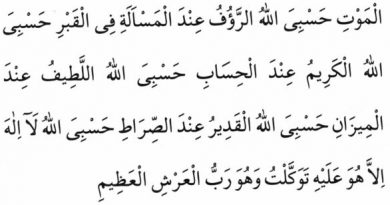 الْمَوْتِ حَسْبِىَ اللهُ الرَّؤُفُ عِنْدَ الْمَسْاَلَةِ فِى الْقَبْرِ حَسْبِىَ
اللهُ الْكَرِيمُ عِنْدَ الْحِسَابِ حَسْبِىَ اللهُ اللَّطِيفُ عِنْدَ
الْمِيزَانِ حَسْبِىَ اللهُ الْقَدِيرُ عِنْدَ الصِّرَاطِ حَسْبِىَ اللهُ لَآ اِلٰهَ
اِلاَّ هُوَ عَلَيْهِ تَوَكَّلْتُ وَهُوَ رَبُّ الْعَرْشِ الْعَظِيمِ